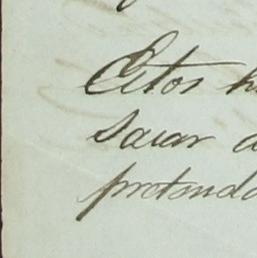 Estos h
sacar d
pretenda